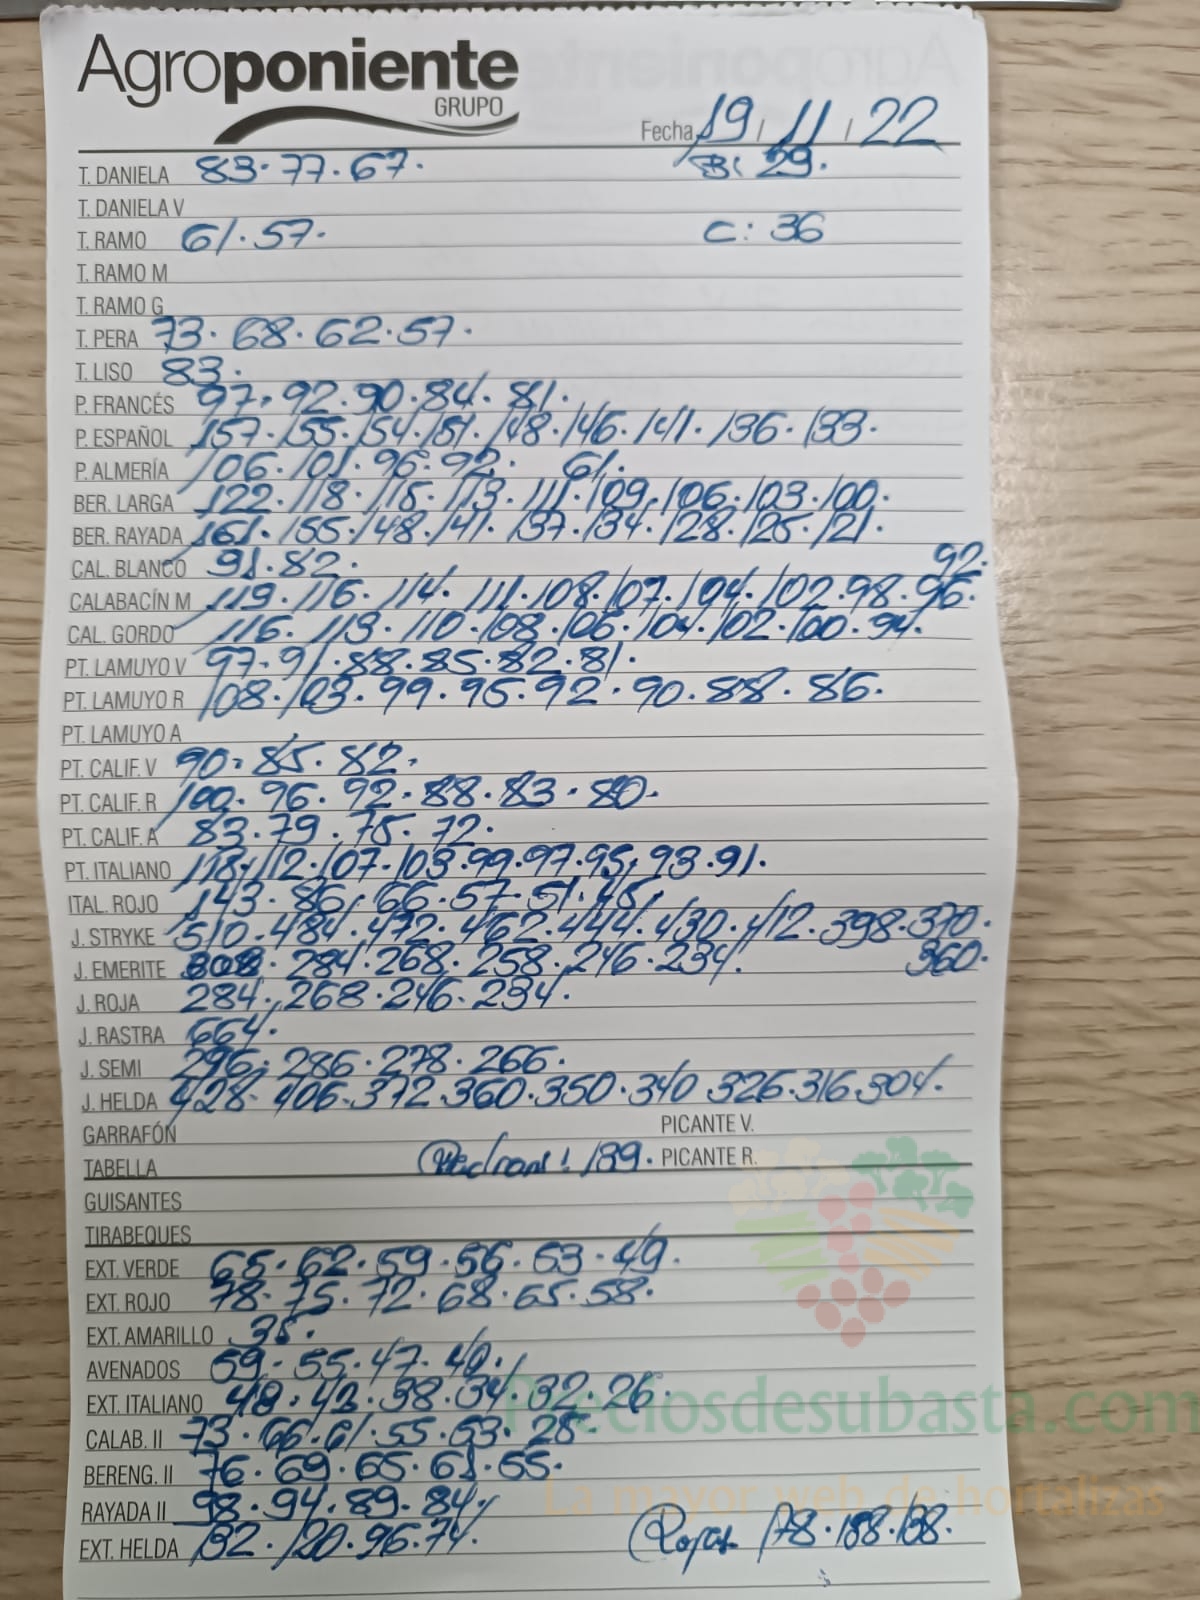 Agroponiente
GRUPO
Fecha 19 / 11 / 22
T. DANIELA 83. 77. 67. B: 29.
T. DANIELA V
T. RAMO 61. 57. C: 36
T. RAMO M
T. RAMO G
T. PERA 73. 68. 62. 57.
T. LISO 83.
P. FRANCÉS 97. 92. 90. 84. 81.
P. ESPAÑOL 157. 155. 154. 151. 148. 146. 141. 136. 133.
P. ALMERÍA 106. 101. 96. 92. 61.
BER. LARGA 122. 118. 115. 113. 111. 109. 106. 103. 100.
BER. RAYADA 161. 155. 148. 141. 137. 134. 128. 125. 121.
CAL. BLANCO 91. 82. 92.
CALABACÍN M 119. 116. 114. 111. 108. 107. 104. 102. 98. 96.
CAL. GORDO 116. 113. 110. 108. 106. 104. 102. 100. 94.
PT. LAMUYO V 97. 91. 88. 85. 82. 81.
PT. LAMUYO R 108. 103. 99. 95. 92. 90. 88. 86.
PT. LAMUYO A
PT. CALIF. V 90. 85. 82.
PT. CALIF. R 100. 96. 92. 88. 83. 80.
PT. CALIF. A 83. 79. 75. 72.
PT. ITALIANO 118. 112. 107. 103. 99. 97. 95. 93. 91.
ITAL. ROJO 143. 86. 66. 57. 51. 45.
J. STRYKE 510. 484. 472. 462. 444. 430. 412. 398. 370.
J. EMERITE 308. 284. 268. 258. 246. 234. 360.
J. ROJA 284. 268. 246. 234.
J. RASTRA 664.
J. SEMI 296. 286. 278. 266.
J. HELDA 428. 406. 372. 360. 350. 340. 326. 316. 304.
GARRAFÓN PICANTE V.
TABELLA 139. PICANTE R.
GUISANTES
TIRABEQUES
EXT. VERDE 65. 62. 59. 56. 53. 49.
EXT. ROJO 78. 75. 72. 68. 65. 58.
EXT. AMARILLO 35.
AVENADOS 59. 55. 47. 40.
EXT. ITALIANO 48. 43. 38. 34. 32. 26.
Preciosdesubasta.com
CALAB. II 73. 66. 61. 55. 53. 28.
BERENG. II 76. 69. 65. 61. 55.
La mayor web de hortalizas
RAYADA II 98. 94. 89. 84.
EXT. HELDA 132. 120. 96. 74. Rojas 178. 158. 138.